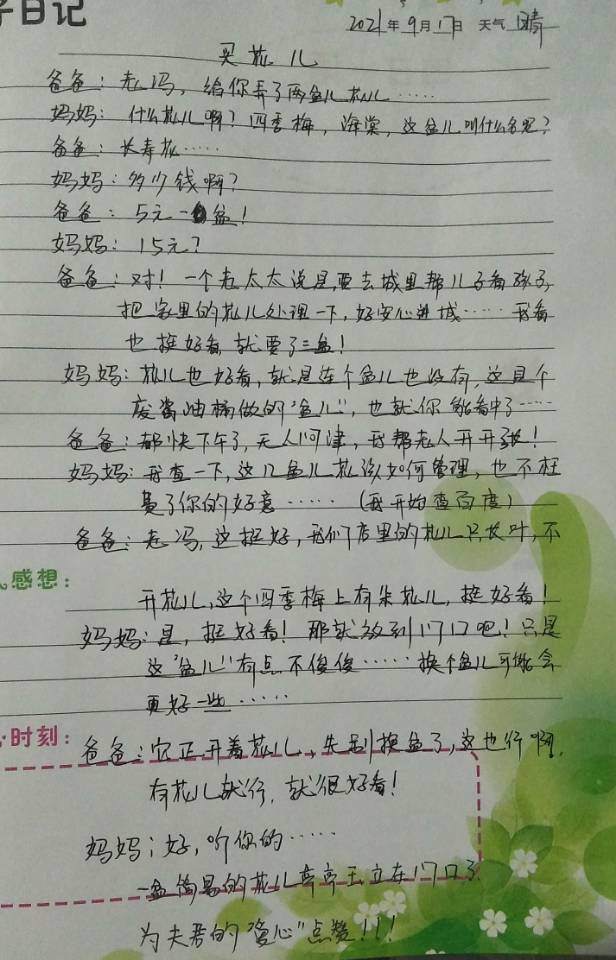 子日记
2021年9月17日 天气 晴
买花儿
爸爸：老冯，给你弄了两盆儿花儿……
妈妈：什么花儿啊？四季梅，海棠，这盆儿叫什么名呢？
爸爸：长寿花……
妈妈：多少钱啊？
爸爸：5元一盆！
妈妈：15元？
爸爸：对！一个老太太说是要去城里帮儿子看孩子，
把家里的花儿处理一下，好安心进城……我看
也挺好看，就要了三盆！
妈妈：花儿也好看，就是连个盆儿也没有，这是个
废酱油桶做的"盆儿"，也就你能看中了……
爸爸：都快下午了，无人问津，我帮老人开开张！
妈妈：我查一下，这几盆儿花该如何管理，也不枉
费了你的好意……（我开始查百度）
爸爸：老冯，这挺好，我们店里的花儿只长叶，不
感想：
开花儿，这个四季梅上有朵花儿，挺好看！
妈妈：是，挺好看！那就放到门口吧！只是
这"盆儿"有点不俊俊……换个盆儿可能会
更好一些……
时刻：
爸爸：它正开着花儿，先别换盆了，这也行啊，
有花儿就行，就很好看！
妈妈：好，听你的……
一盆简易的花儿亭亭玉立在门口了
为夫君的"爱心"点赞！！！